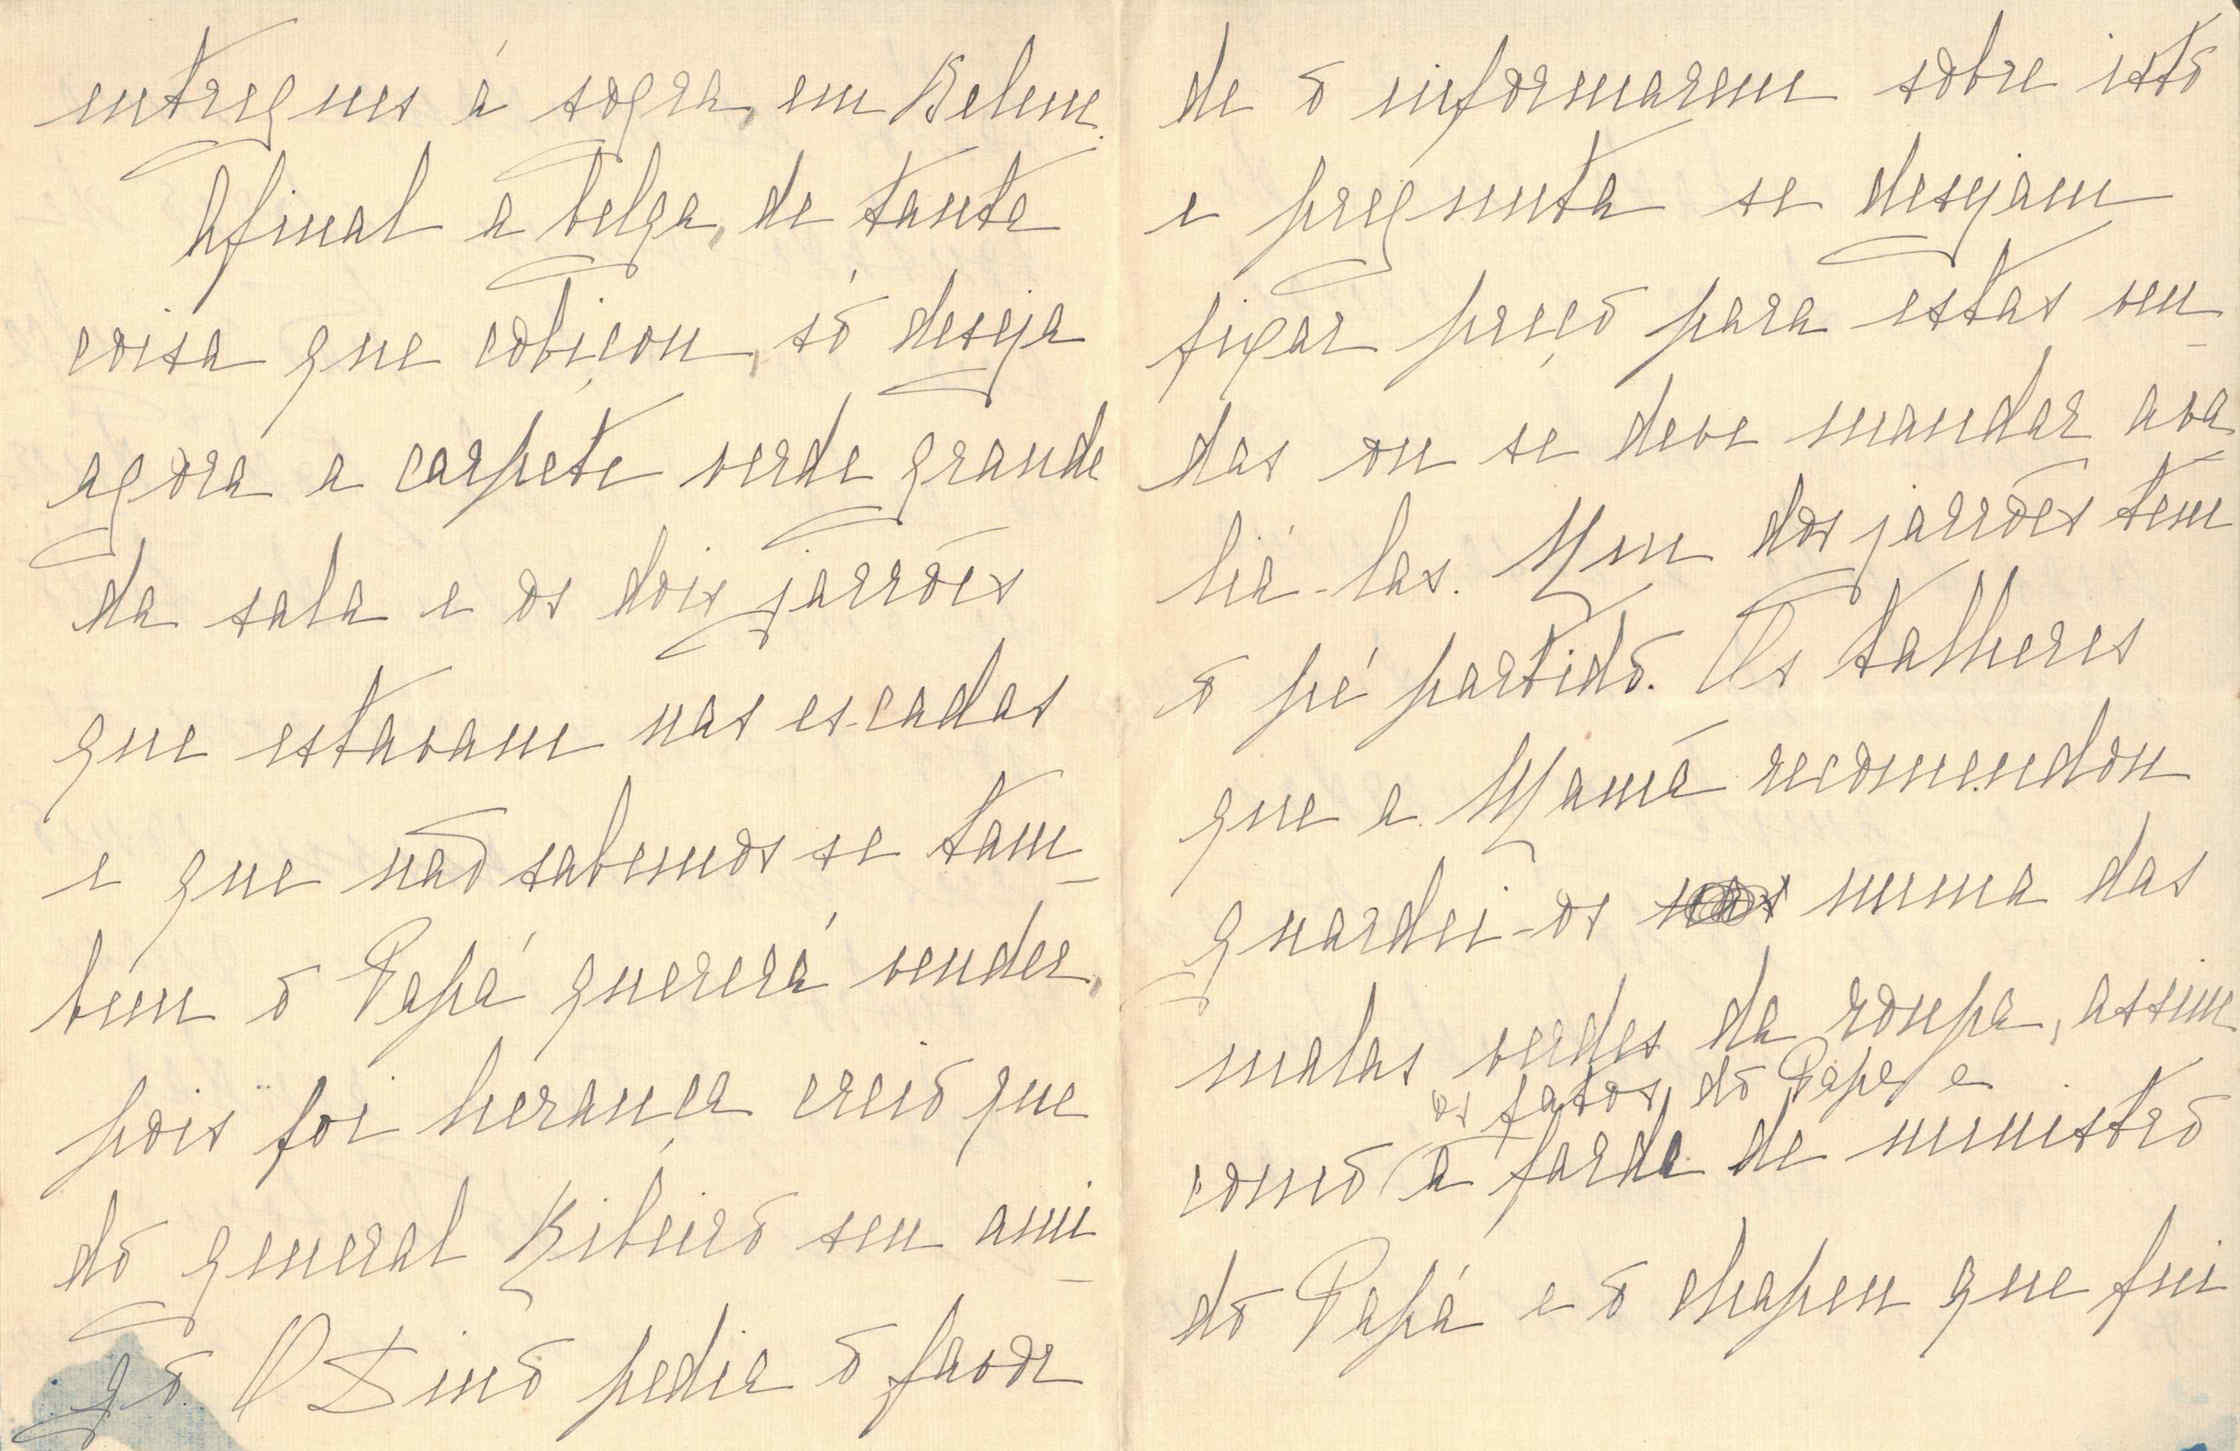 entregues á sogra, em Belem.
Afinal a belga, de tanta
coisa que cobiçou, só deseja
agora a carpete verde grande
da sala e os dois jarrões
que estavam nas escadas
e que não sabemos se tam-
bem o Papá quererá vender,
pois foi herança creio que
do general Ribeiro seu ami-
go. O Dino pedia o favor
de o informarem sobre isto
e pregunta se desejam
fixar preço para estas ven-
das ou se deve mandar ava
liá-las. Um dos jarrões tem
o pé partido. Os talheres
que a Mamã recomendou
guardei-os nas numa das
malas verdes da roupa, assim
os fatos do Papá e
como a farda de ministro
do Papá e o chapeu que fui